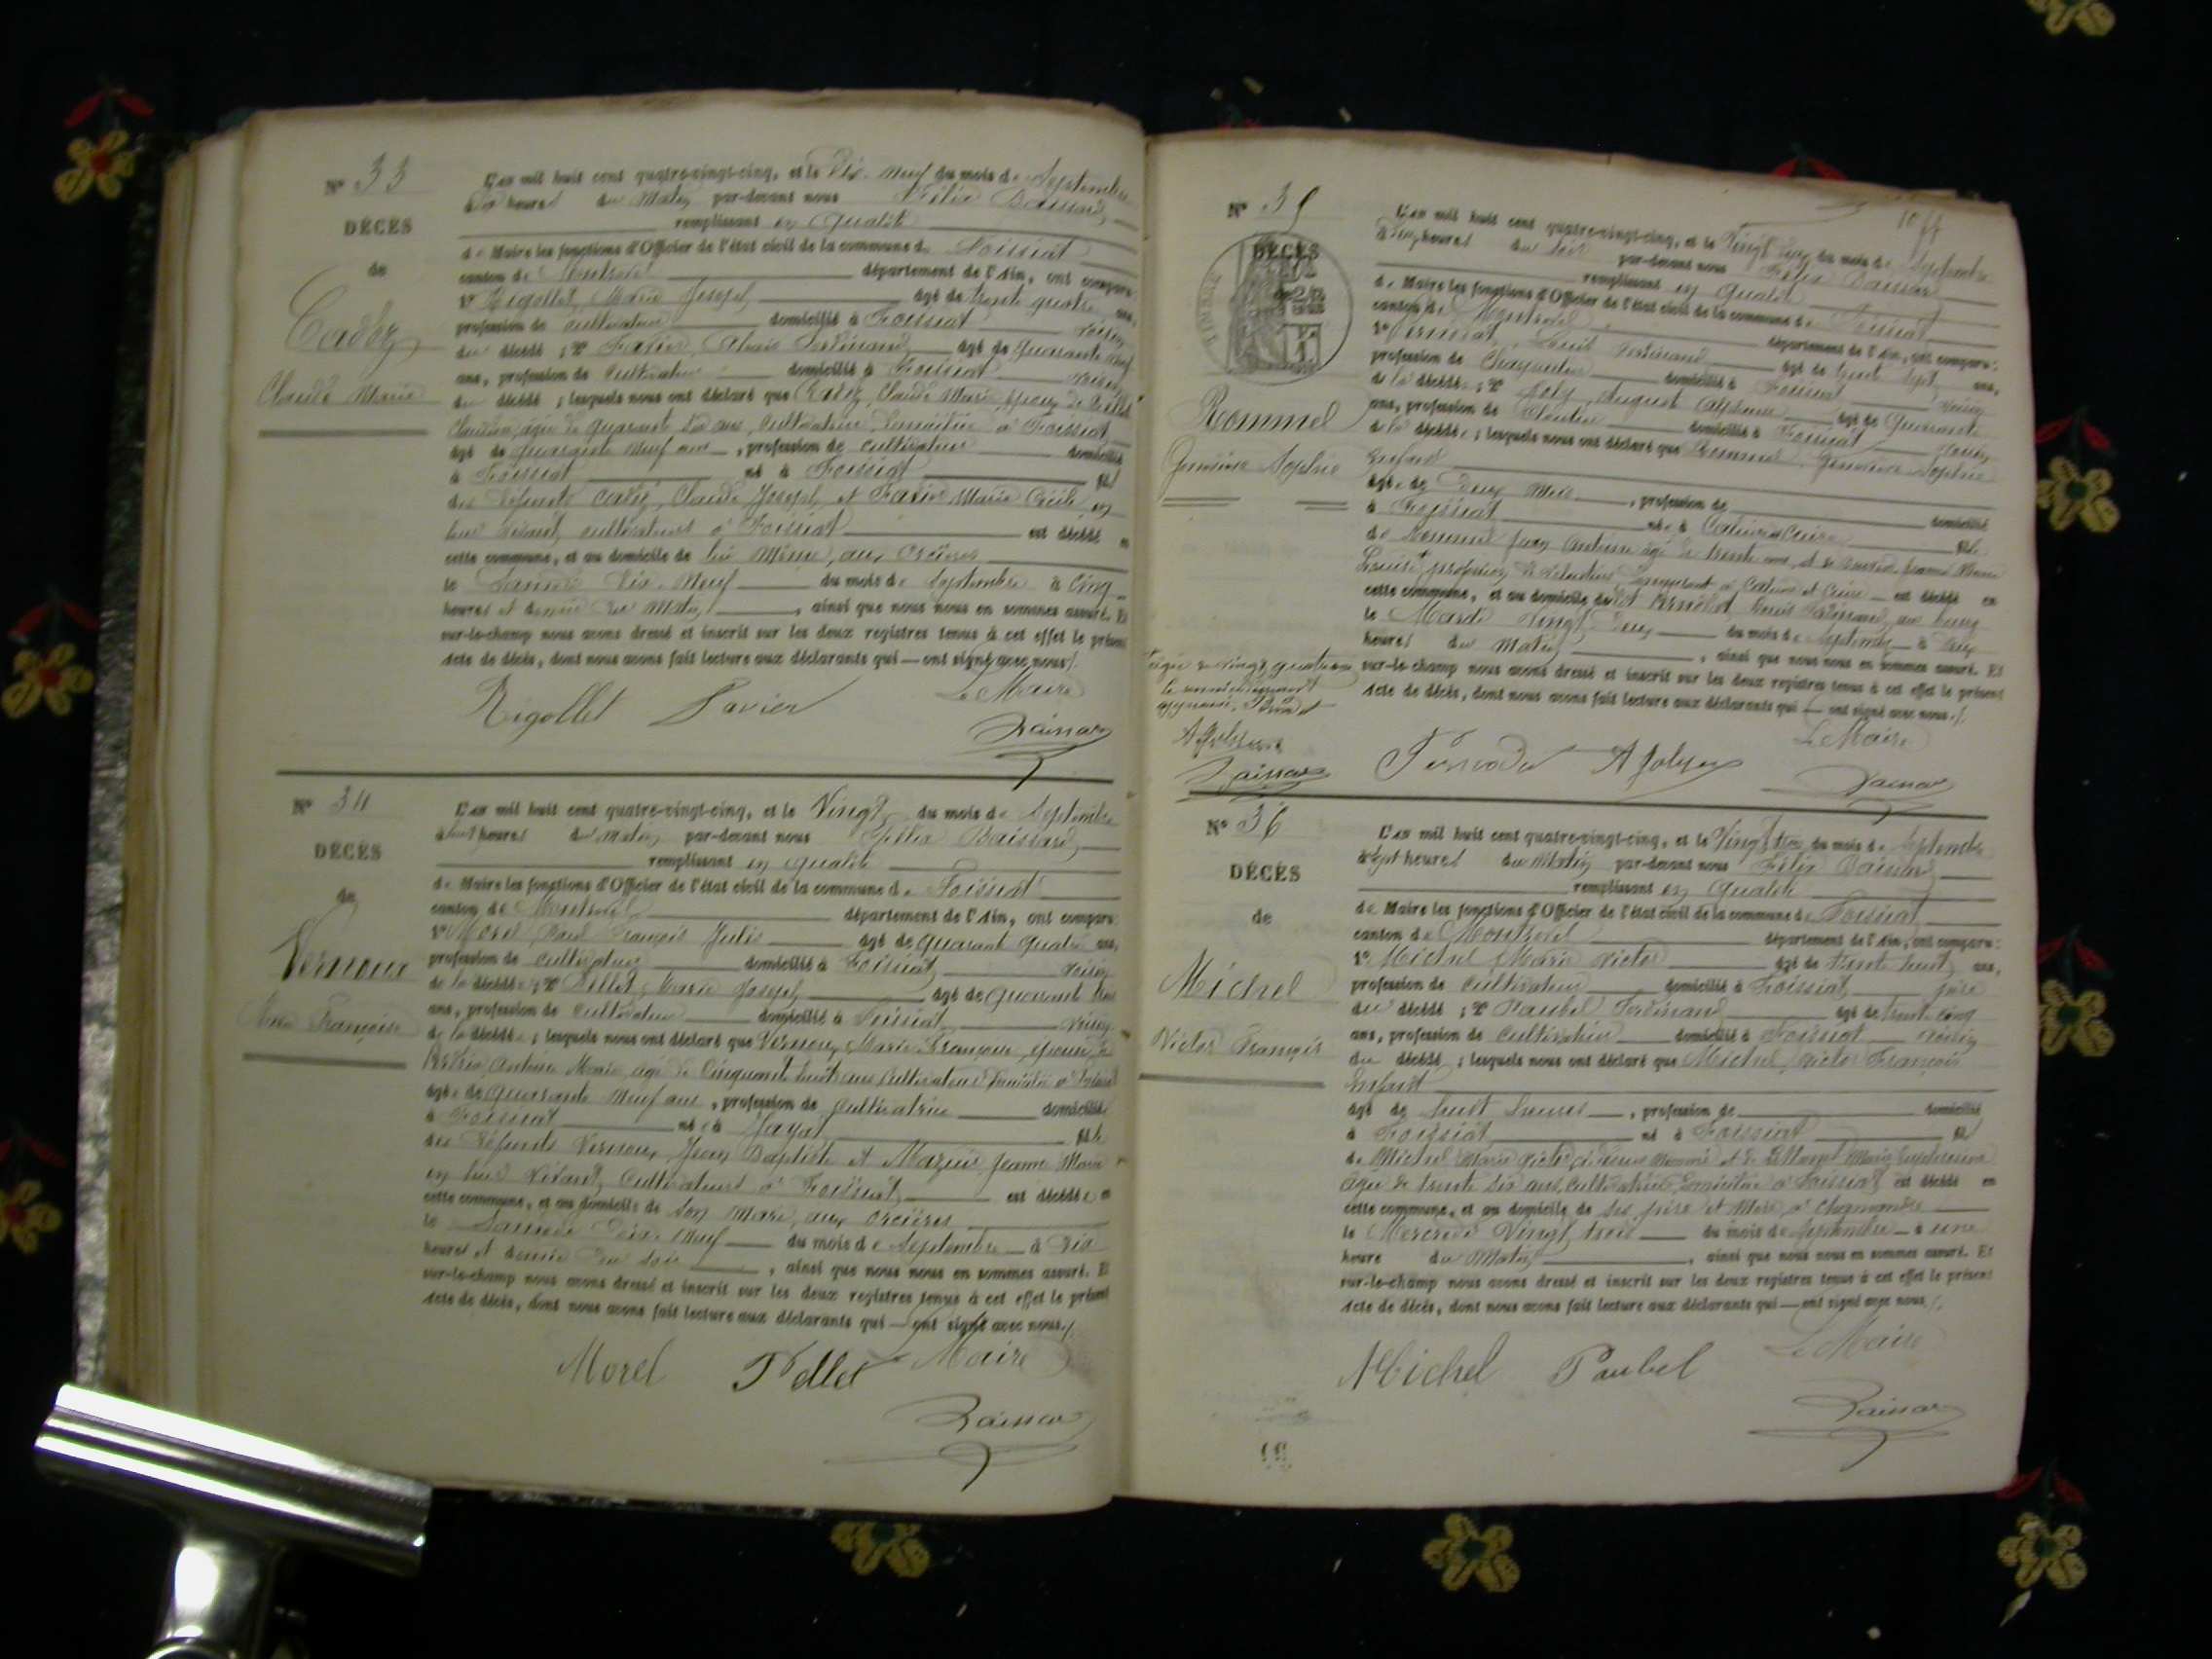 N° 33
DÉCÈS
de
Cadoz
Claude Marie
L'an mil huit cent quatre-vingt-cinq, et le Dix-Neuf du mois de Septembre
heures du Matin par-devant nous Félix
remplissant en qualité
de Maire les fonctions d'Officier de l'état civil de la commune de Foissiat
canton de Montrevel département de l'Ain, ont comparu:
1° Rigollet, Marie Joseph âgé de trente quatre ans,
profession de cultivateur domicilié à Foissiat voisin
du décédé; 2° âgé de quarante
ans, profession de cultivateur domicilié à Foissiat voisin
du décédé; lesquels nous ont déclaré que Cadoz, Claude Marie, époux de
âgée de quarante six ans, cultivatrice, domiciliée à Foissiat
âgé de quarante neuf ans, profession de cultivateur domicilié
à Foissiat né à Foissiat fils
des défunts Cadoz, Claude Joseph, et Marie en
leur vivant, cultivateurs à Foissiat est décédé en
cette commune, et au domicile de lui même, aux
le Samedi Dix-Neuf du mois de Septembre à cinq
heures et demie du matin, ainsi que nous nous en sommes assuré. Et
sur-le-champ nous avons dressé et inscrit sur les deux registres tenus à cet effet le présent
acte de décès, dont nous avons fait lecture aux déclarants qui — ont signé avec nous./.
Rigollet
Le Maire
N° 34
DÉCÈS
de
Vernoux
Marie Françoise
L'an mil huit cent quatre-vingt-cinq, et le Vingt du mois de Septembre
heures du matin par-devant nous Félix
remplissant en qualité
de Maire les fonctions d'Officier de l'état civil de la commune de Foissiat
canton de Montrevel département de l'Ain, ont comparu:
1° Morel, Paul François âgé de quarante quatre ans,
profession de cultivateur domicilié à Foissiat voisin
de la décédée; 2° Marie Joseph âgé de quarante
ans, profession de cultivateur domicilié à Foissiat voisin
de la décédée; lesquels nous ont déclaré que Vernoux, Marie Françoise, épouse de
Antoine Marie, âgé de cinquante huit ans cultivateur domicilié à Foissiat
âgée de quarante neuf ans, profession de cultivatrice domiciliée
à Foissiat née à Jayat fille
des défunts Vernoux, Jean Baptiste et Jeanne Marie
en leur vivant, cultivateurs à Foissiat est décédée en
cette commune, et au domicile de son mari, aux
le Samedi Dix-Neuf du mois de Septembre à dix
heures et demie du soir, ainsi que nous nous en sommes assuré. Et
sur-le-champ nous avons dressé et inscrit sur les deux registres tenus à cet effet le présent
acte de décès, dont nous avons fait lecture aux déclarants qui — ont signé avec nous./.
Morel
Le Maire
N° 35
DÉCÈS
Rommel
Sophie
L'an mil huit cent quatre-vingt-cinq, et le Vingt deux du mois de Septembre
heures du soir par-devant nous Félix
remplissant en qualité
de Maire les fonctions d'Officier de l'état civil de la commune de Foissiat
canton de Montrevel département de l'Ain, ont comparu:
1° Louis Ferdinand âgé de trente sept ans,
profession de charpentier domicilié à Foissiat voisin
de la décédée; 2° August Alphonse âgé de quarante
ans, profession de domicilié à Foissiat voisin
de la décédée; lesquels nous ont déclaré que Rommel, Sophie
Enfant
âgée de deux mois, profession de domiciliée
à Foissiat née à fille
de Rommel Jean Antoine âgé de trente ans et de
Louise profession de
cette commune, et au domicile de Louis Ferdinand, au bourg
le Mardi Vingt deux du mois de Septembre à
heures du matin, ainsi que nous nous en sommes assuré. Et
sur-le-champ nous avons dressé et inscrit sur les deux registres tenus à cet effet le présent
acte de décès, dont nous avons fait lecture aux déclarants qui — ont signé avec nous./.
âgée de vingt quatre ans
Le Maire
N° 36
DÉCÈS
de
Michel
Victor François
L'an mil huit cent quatre-vingt-cinq, et le Vingt trois du mois de Septembre
à sept heures du matin par-devant nous Félix
remplissant en qualité
de Maire les fonctions d'Officier de l'état civil de la commune de Foissiat
canton de Montrevel département de l'Ain, ont comparu:
1° Michel, Marie Victor âgé de trente huit ans,
profession de cultivateur domicilié à Foissiat père
du décédé; 2° Paubel Ferdinand âgé de trente cinq
ans, profession de cultivateur domicilié à Foissiat voisin
du décédé; lesquels nous ont déclaré que Michel, Victor François
Enfant
âgé de huit heures, profession de domicilié
à Foissiat né à Foissiat fils
de Michel Marie Victor, et de
âgée de trente six ans, cultivatrice, domiciliée à Foissiat est décédé en
cette commune, et au domicile de ses père et mère, à
le Mercredi Vingt trois du mois de Septembre à une
heure du matin, ainsi que nous nous en sommes assuré. Et
sur-le-champ nous avons dressé et inscrit sur les deux registres tenus à cet effet le présent
acte de décès, dont nous avons fait lecture aux déclarants qui — ont signé avec nous./.
Michel Paubel
Le Maire